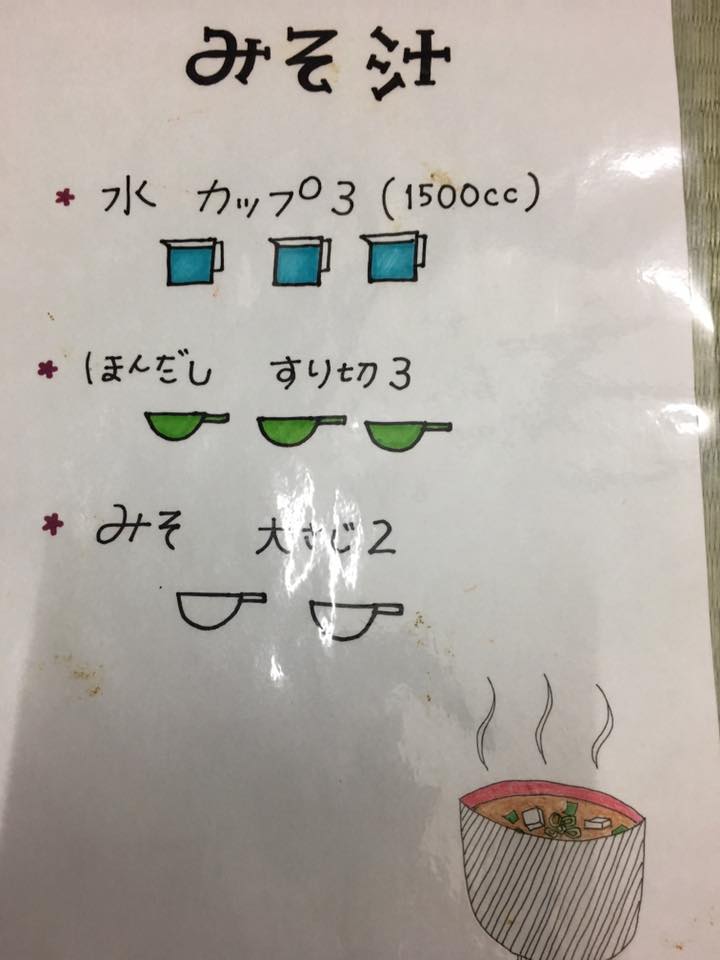 みそ汁
* 水 カップ3(1500cc)
* ほんだし すり切3
* みそ 大さじ2